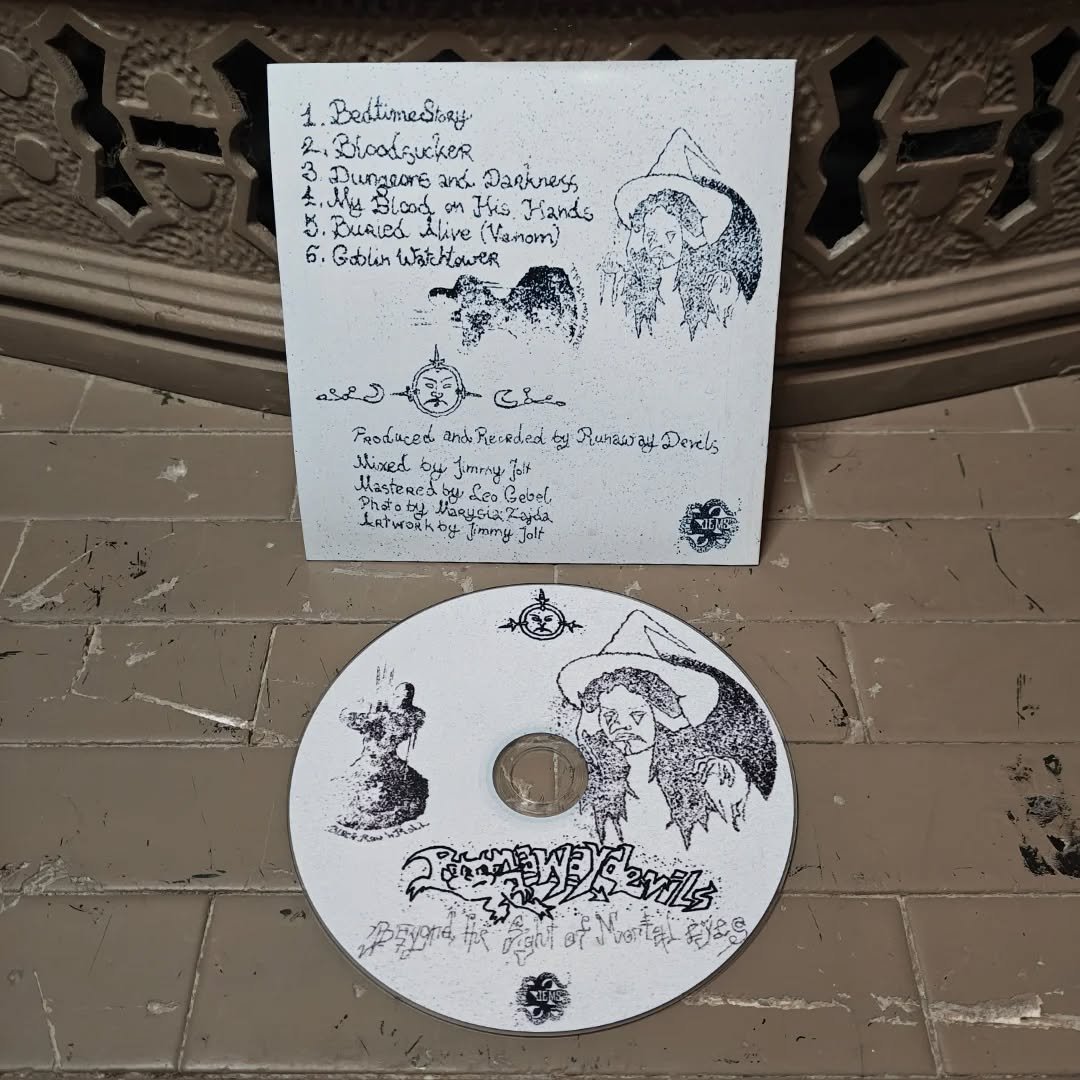 1. Bedtime Story
2. Bloodsucker
3. Dungeons and Darkness
4. My Blood on His Hands
5. Buried Alive (Vanom)
6. Goblin Watchtower
Produced and Recorded by Runaway Devils
Mixed by Jimmy Jolt
Mastered by Leo Gebel
Photo by Marysia Zajda
Artwork by Jimmy Jolt
Runawaydevils
Beyond the Sight of Mortal eyes